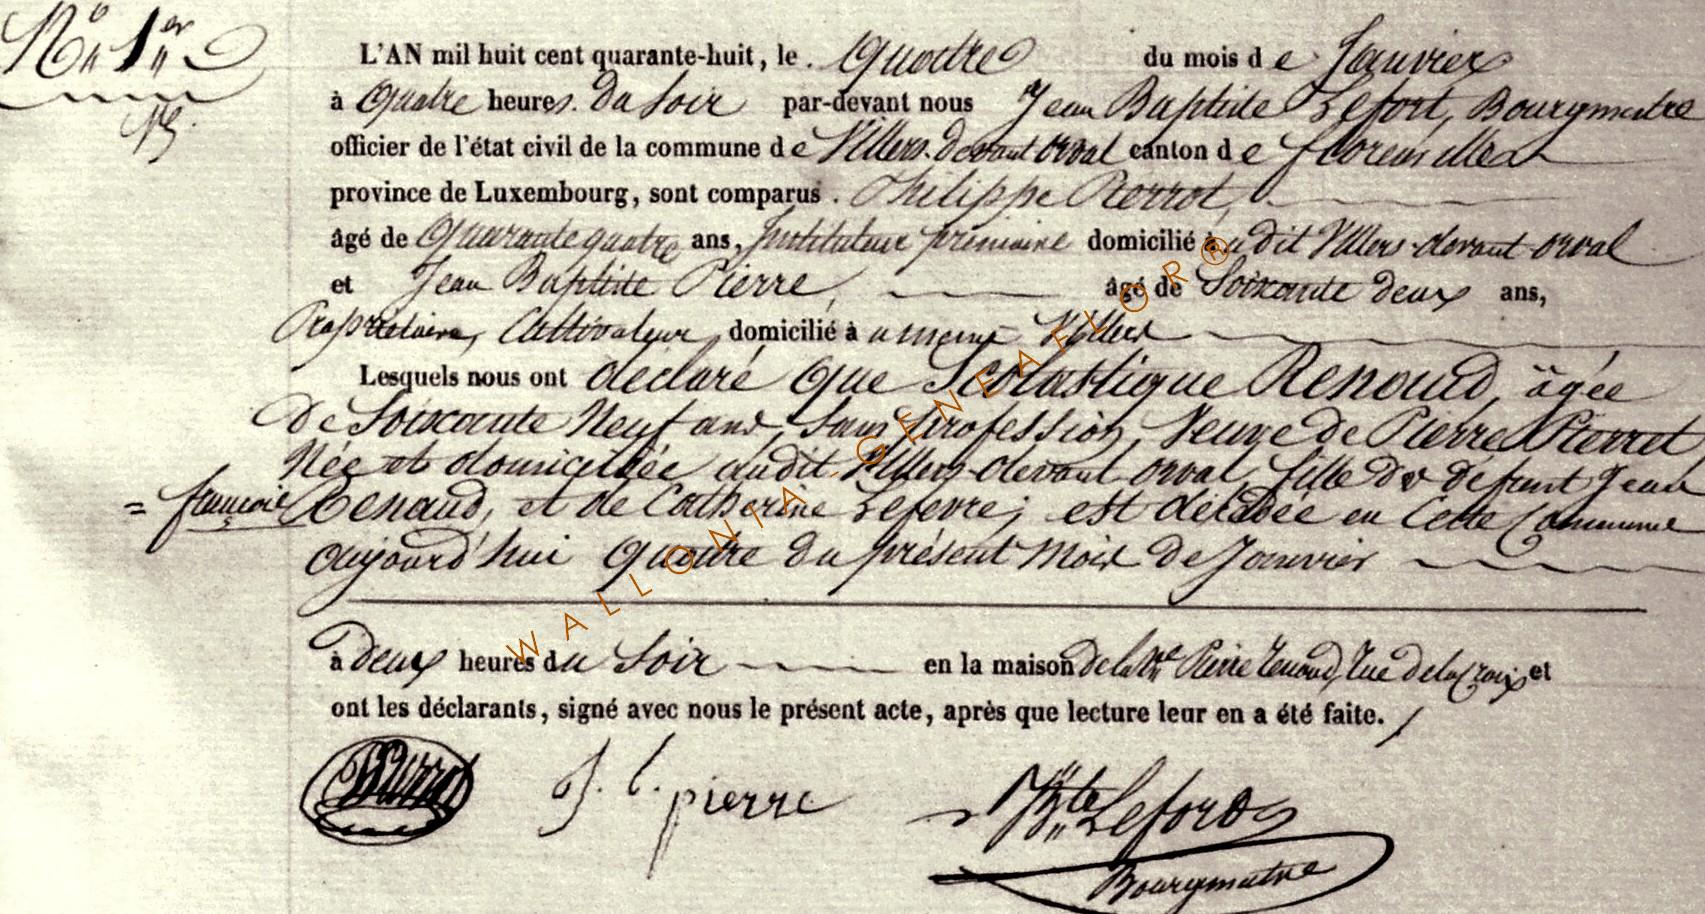 N° 1er
L'AN mil huit cent quarante-huit, le quatre du mois de Janvier
à quatre heures du soir par-devant nous Jean Baptiste Lefort, Bourgmestre
officier de l'état civil de la commune de Villers-devant-orval canton de florenville
province de Luxembourg, sont comparus. Philippe Pierrot,
âgé de quarante quatre ans, Instituteur primaire domicilié audit Villers-devant-orval
et Jean Baptiste Pierre, âgé de Soixante deux ans,
Propriétaire, Cultivateur, domicilié à u meme Villers
Lesquels nous ont déclaré que Scolastique Renaud, âgée
de Soixante Neuf ans, Sans profession, Veuve de Pierre Pierret,
Née et domiciliée audit Villers-devant-orval, fille de défunt Jean
= françois Renaud, et de Catherine Lefevre; est décédée en Cette Commune
aujourd'hui quatre du présent mois de Janvier
à deux heures du Soir en la maison de la Pierre Renaud, Rue de la Croix, et
ont les déclarants, signé avec nous le présent acte, après que lecture leur en a été faite.
Pierrot J. b. pierre JBte Lefort
Bourgmestre
WALLONIA-GENEAFLOR®